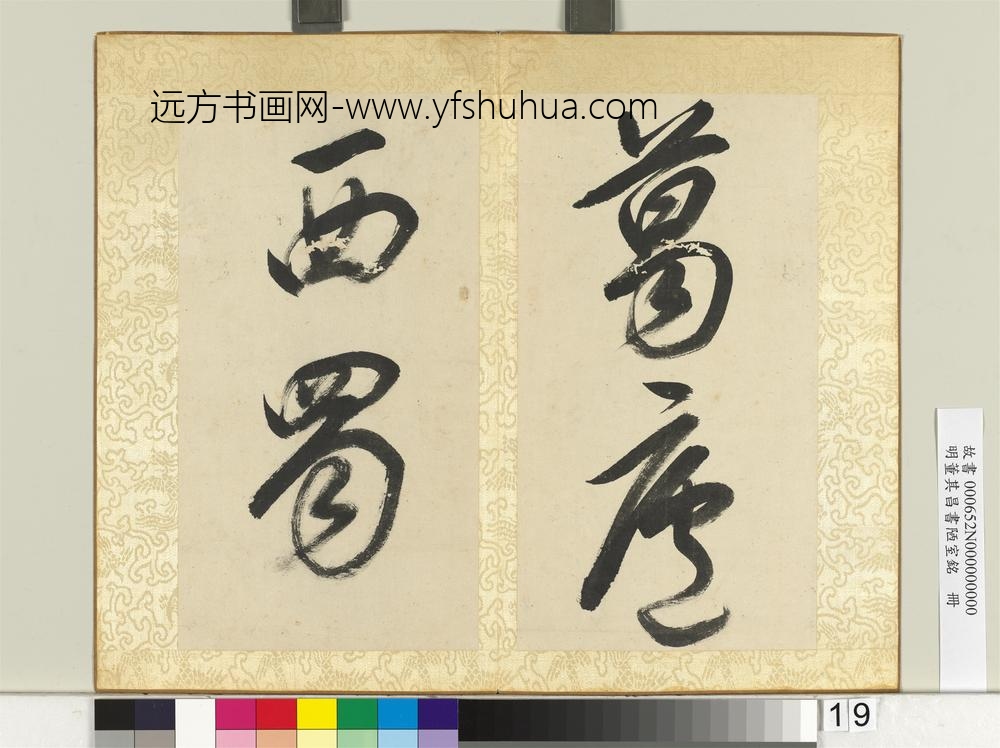 远方书画网-www.yfshuhua.com
葛廬
西蜀
故書 000652N000000000
明董其昌書陋室銘 冊
19